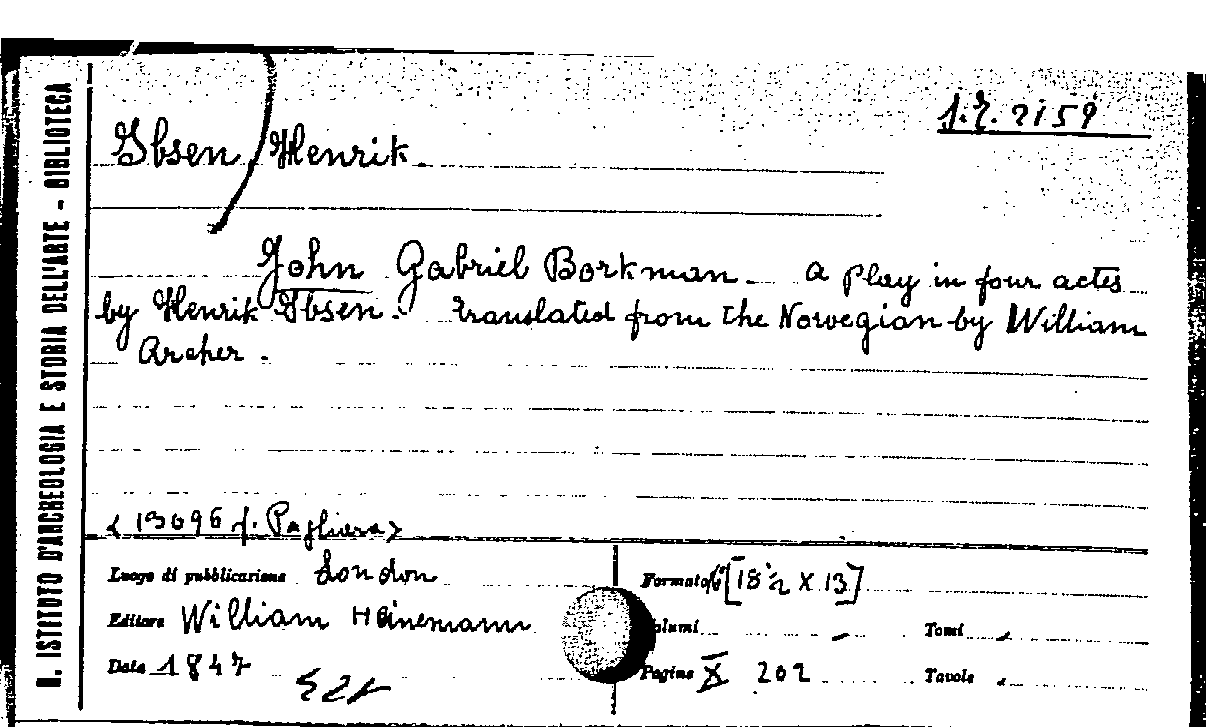 R. ISTITUTO D'ARCHEOLOGIA E STORIA DELL'ARTE - BIBLIOTECA
Ibsen, Henrik.
John Gabriel Borkman. a play in four actes
by Henrik Ibsen. Translated from the Norwegian by William
Archer.
<13096 f. Pagliara>
Luogo di pubblicazione London
Formato [18½ X 13]
Editore William Heinemann
Volumi - Tomi -
Data 1847
Pagine X 202 Tavole -